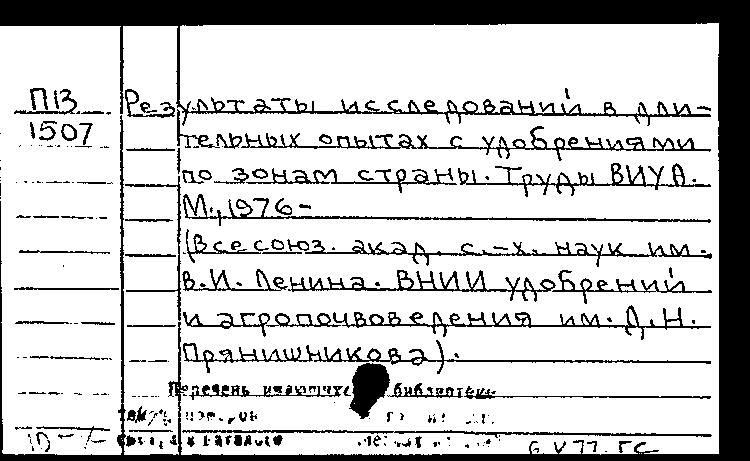 П13
1507
Результаты исследований в дли-
тельных опытах с удобрениями
по зонам страны. Труды ВИУА.
М., 1976-
(Всесоюз. акад. с.-х. наук им.
В.И. Ленина. ВНИИ удобрений
и агропочвоведения им. Д.Н.
Прянишникова).
Перечень имеющихся библиотеке
6 V 77. ГС